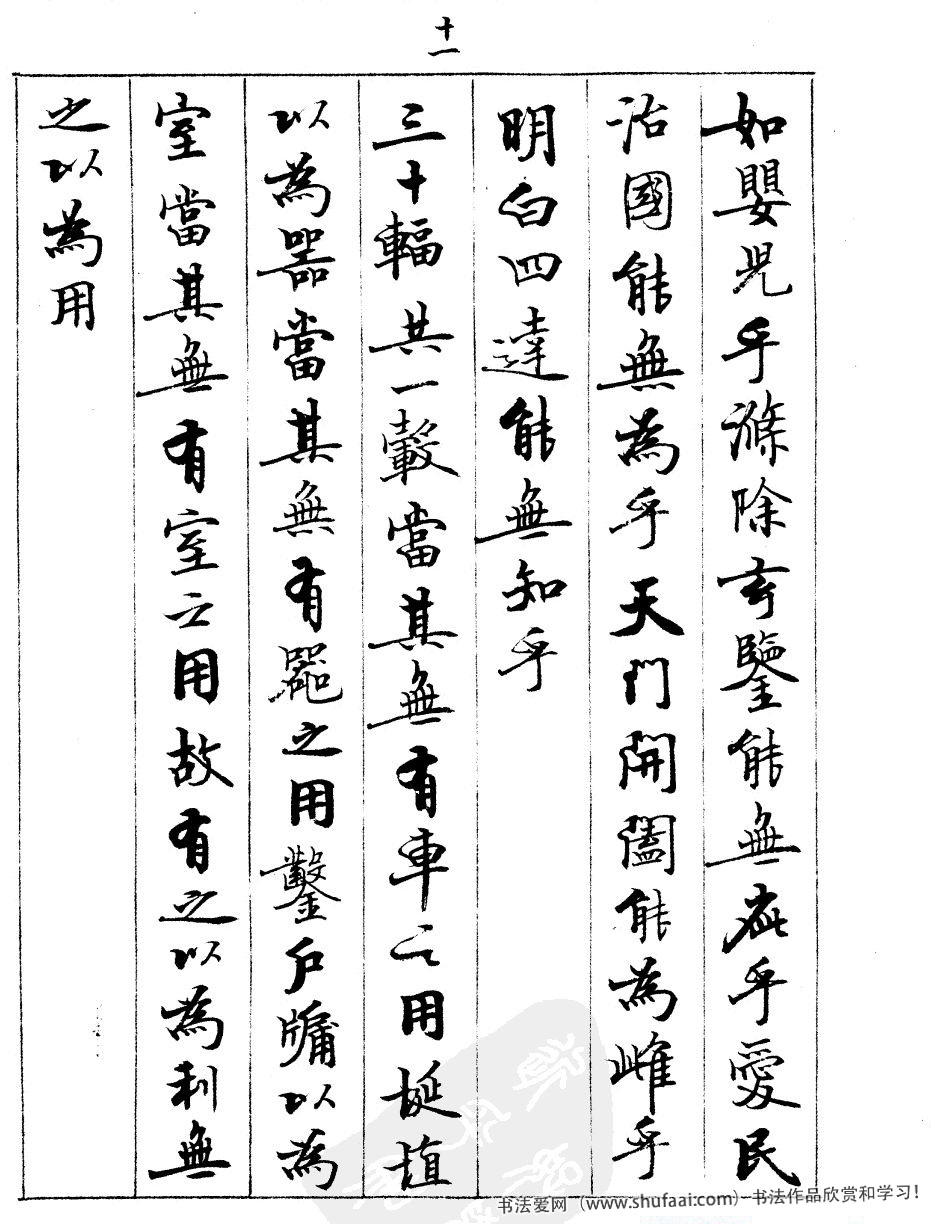 十一
如嬰兒乎滌除玄鑒能無疵乎愛民
治國能無為乎天門開闔能為雌乎
明白四達能無知乎
三十輻共一轂當其無有車之用埏埴
以為器當其無有器之用鑿戶牖以為
室當其無有室之用故有之以為利無
之以為用
书法爱网（www.shufaai.com）-书法作品欣赏和学习！